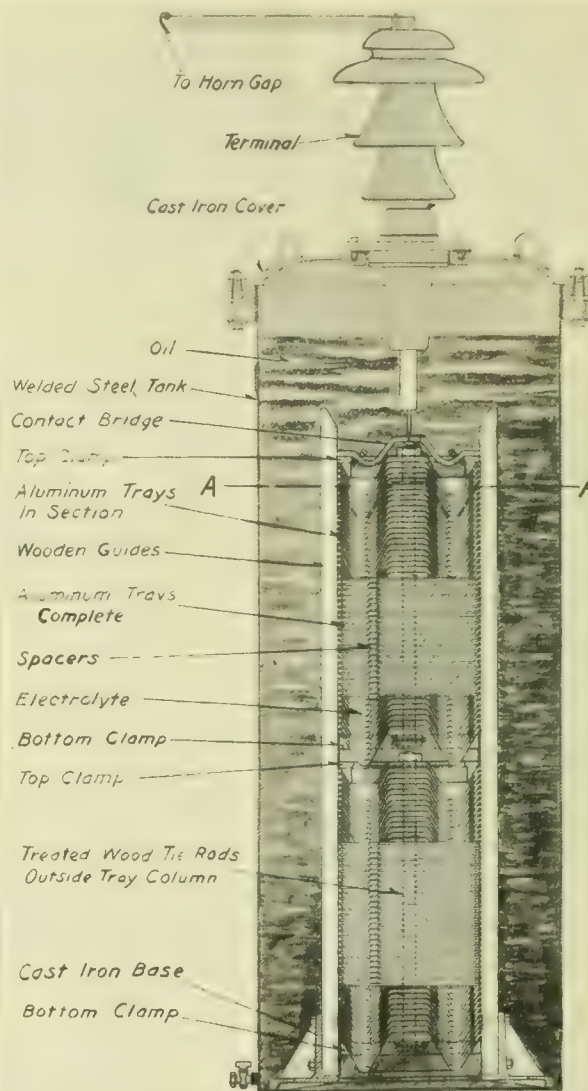 To Horn Gap
Terminal
Cast Iron Cover
Oil
Welded Steel Tank
Contact Bridge
Top Clamp
A A
Aluminum Trays
In Section
Wooden Guides
Aluminum Trays
Complete
Spacers
Electrolyte
Bottom Clamp
Top Clamp
Treated Wood Tie Rods
Outside Tray Column
Cast Iron Base
Bottom Clamp